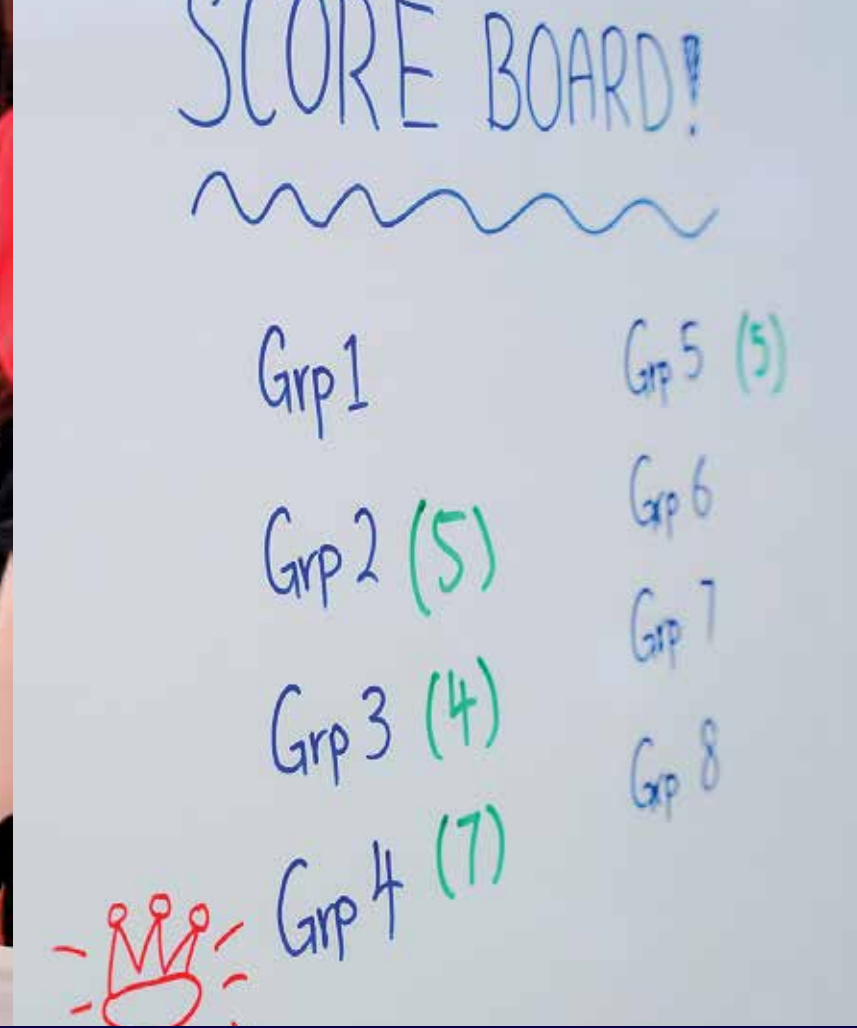 SCORE BOARD!
Grp 1
Grp 2 (5)
Grp 3 (4)
Grp 4 (7)
Grp 5 (5)
Grp 6
Grp 7
Grp 8